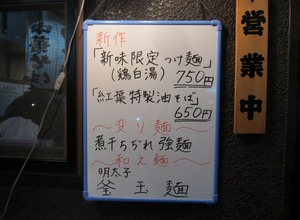 新作
「新味限定つけ麺」
(鶏白湯) 750円
「紅葉特製油そば」
650円
〜変り麺〜
煮干ちぢれ強麺
〜和え麺〜
明太子
釜玉麺
営業中